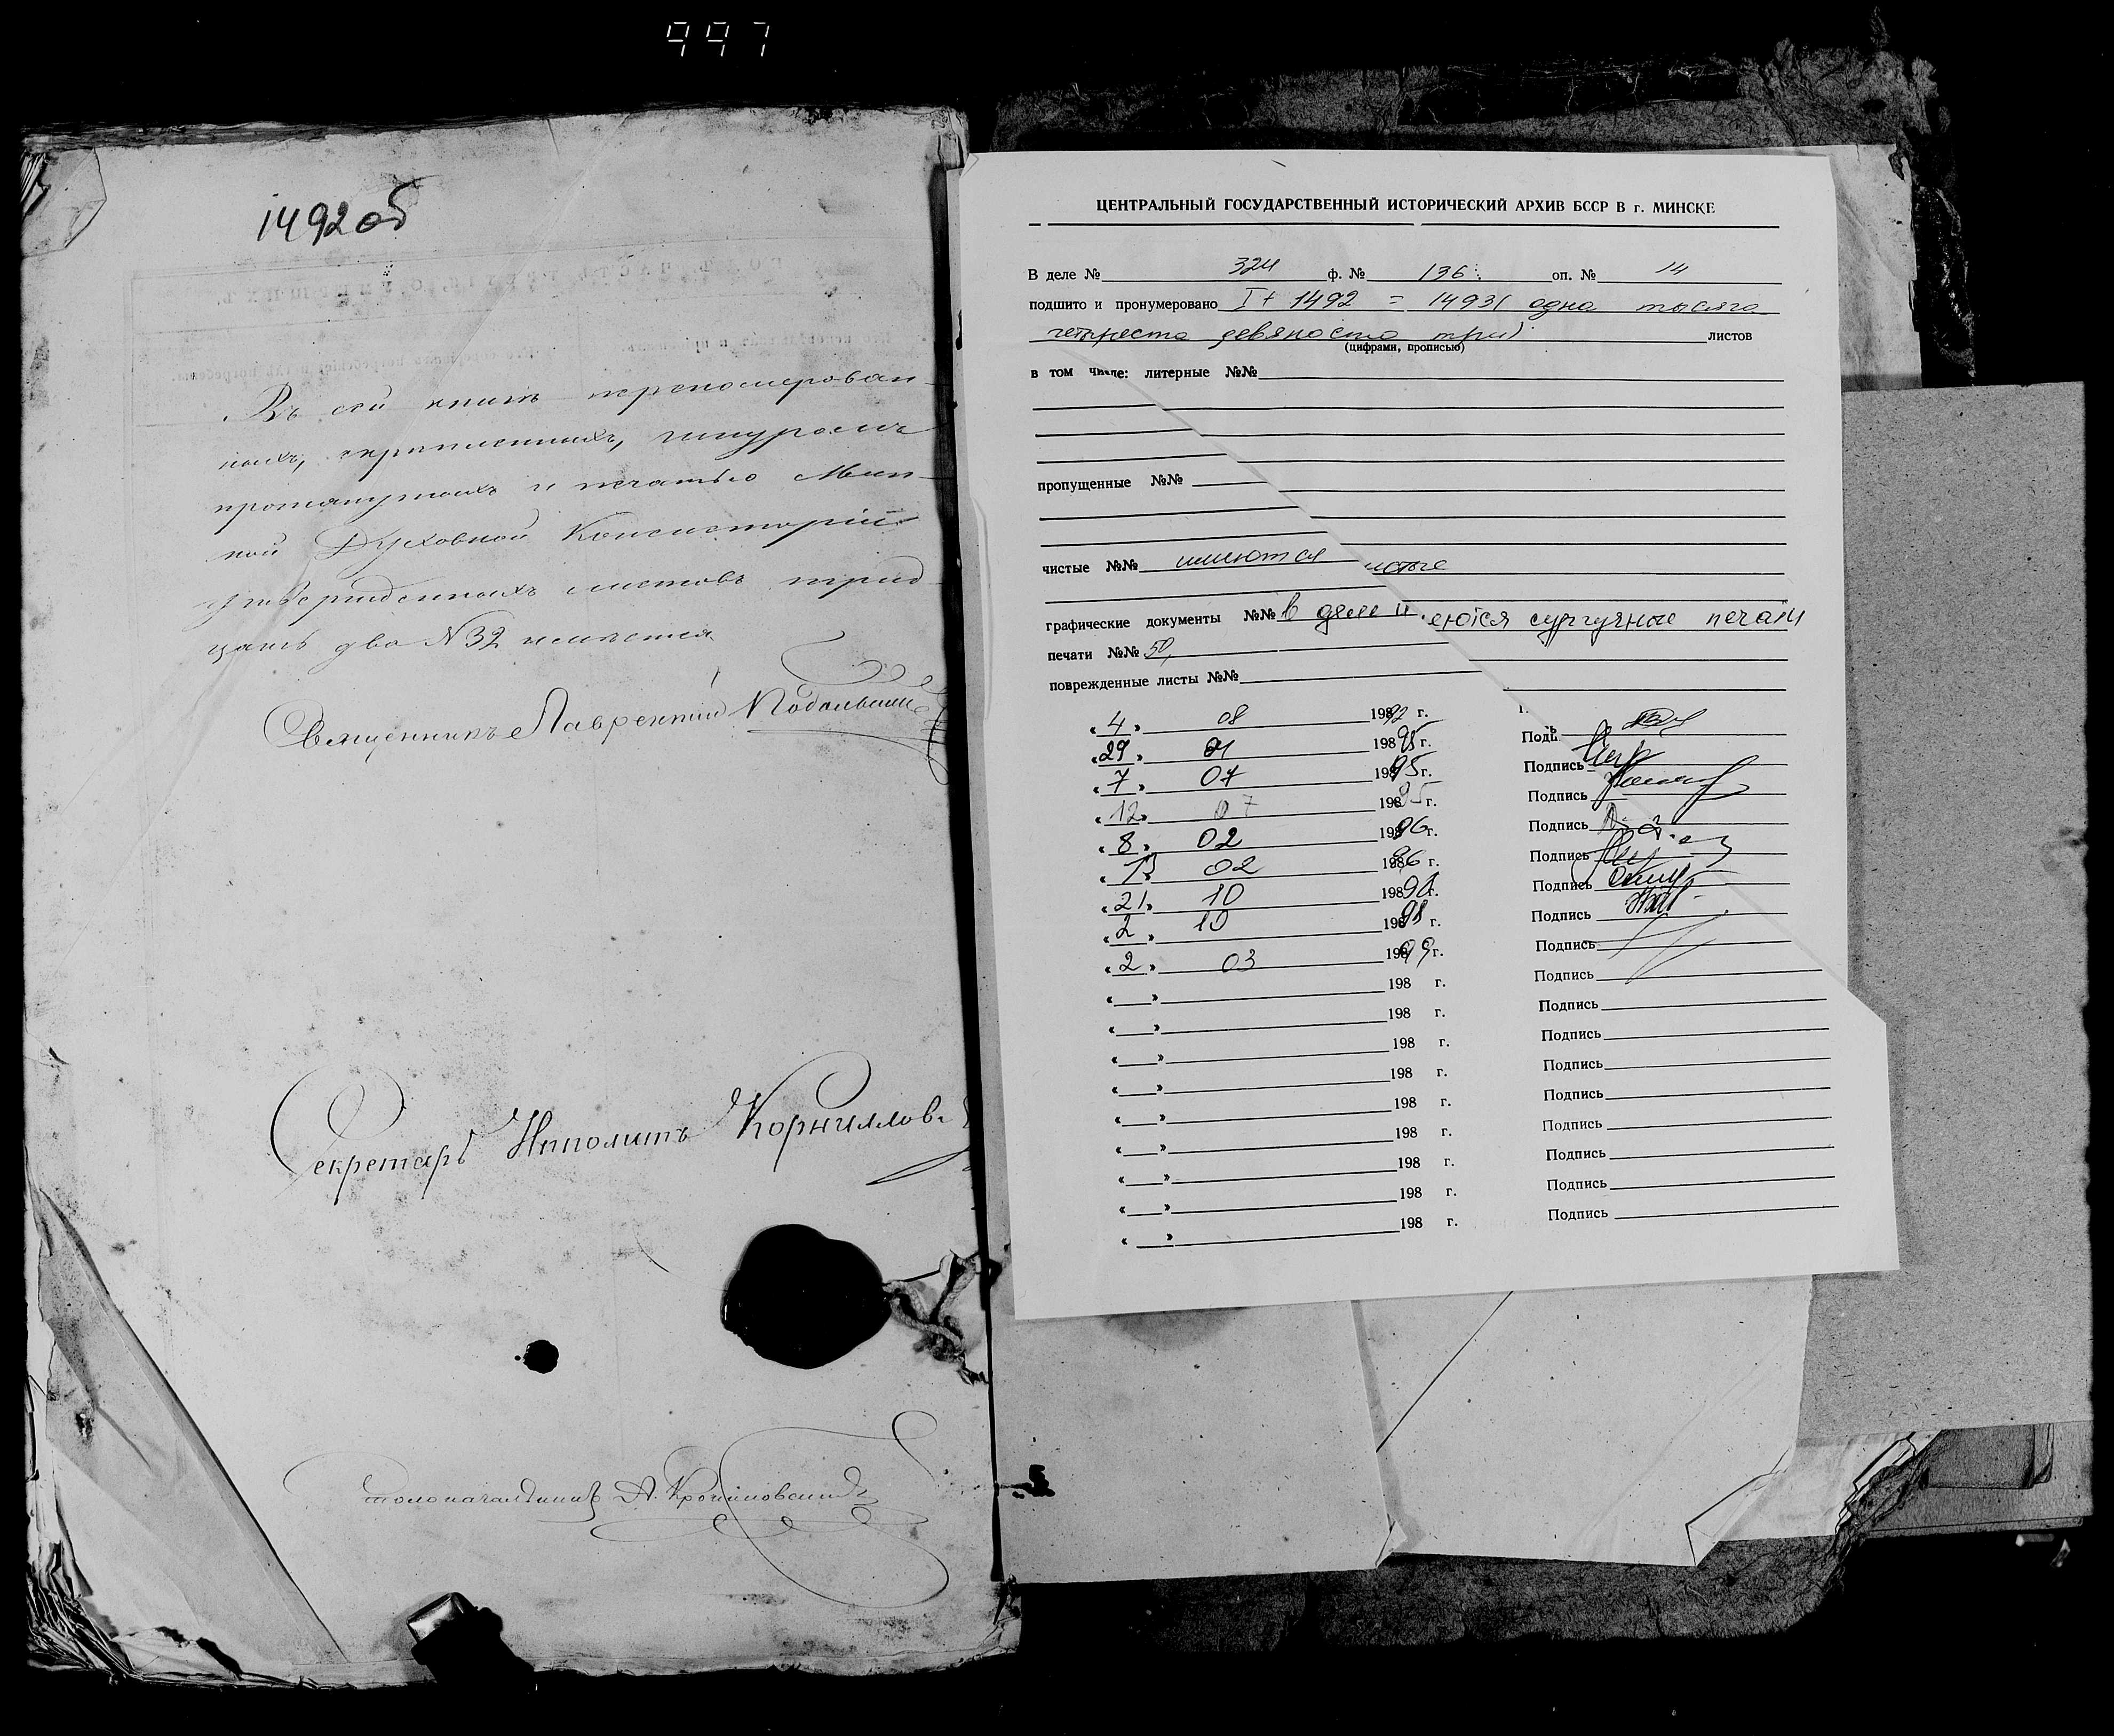 997
1492об
Въ сей книгѣ перенумерован-
ныхъ, скрѣпленныхъ, шнуромъ
протянутыхъ и печатью Мин-
ской Духовной Консисторіи
утвержденныхъ листовъ трид-
цать два №32 имѣется
Священникъ Лаврентій
Секретарь Ипполитъ Корниллов
Столоначальникъ А.
ЦЕНТРАЛЬНЫЙ ГОСУДАРСТВЕННЫЙ ИСТОРИЧЕСКИЙ АРХИВ БССР В г. МИНСКЕ
В деле № 324 ф. № 136 оп. № 14
подшито и пронумеровано I + 1492 = 1493( одна тысяча
четыреста девяносто три) листов
(цифрами, прописью)
в том числе: литерные №№
пропущенные №№
чистые №№ имеются
графические документы №№ в деле имеются сургучные печати
печати №№ 50,
поврежденные листы №№
«4» 08 1992 г. Подпись
«29» 1995 г. Подпись
«7» 07 1995 г. Подпись
«12» 07 1995 г. Подпись
«8» 02 1996 г. Подпись
«13» 02 1996 г. Подпись
«21» 10 199 г. Подпись
«2» 10 1998 г. Подпись
«2» 03 1999 г. Подпись
« » 198 г. Подпись
« » 198 г. Подпись
« » 198 г. Подпись
« » 198 г. Подпись
« » 198 г. Подпись
« » 198 г. Подпись
« » 198 г. Подпись
« » 198 г. Подпись
« » 198 г.